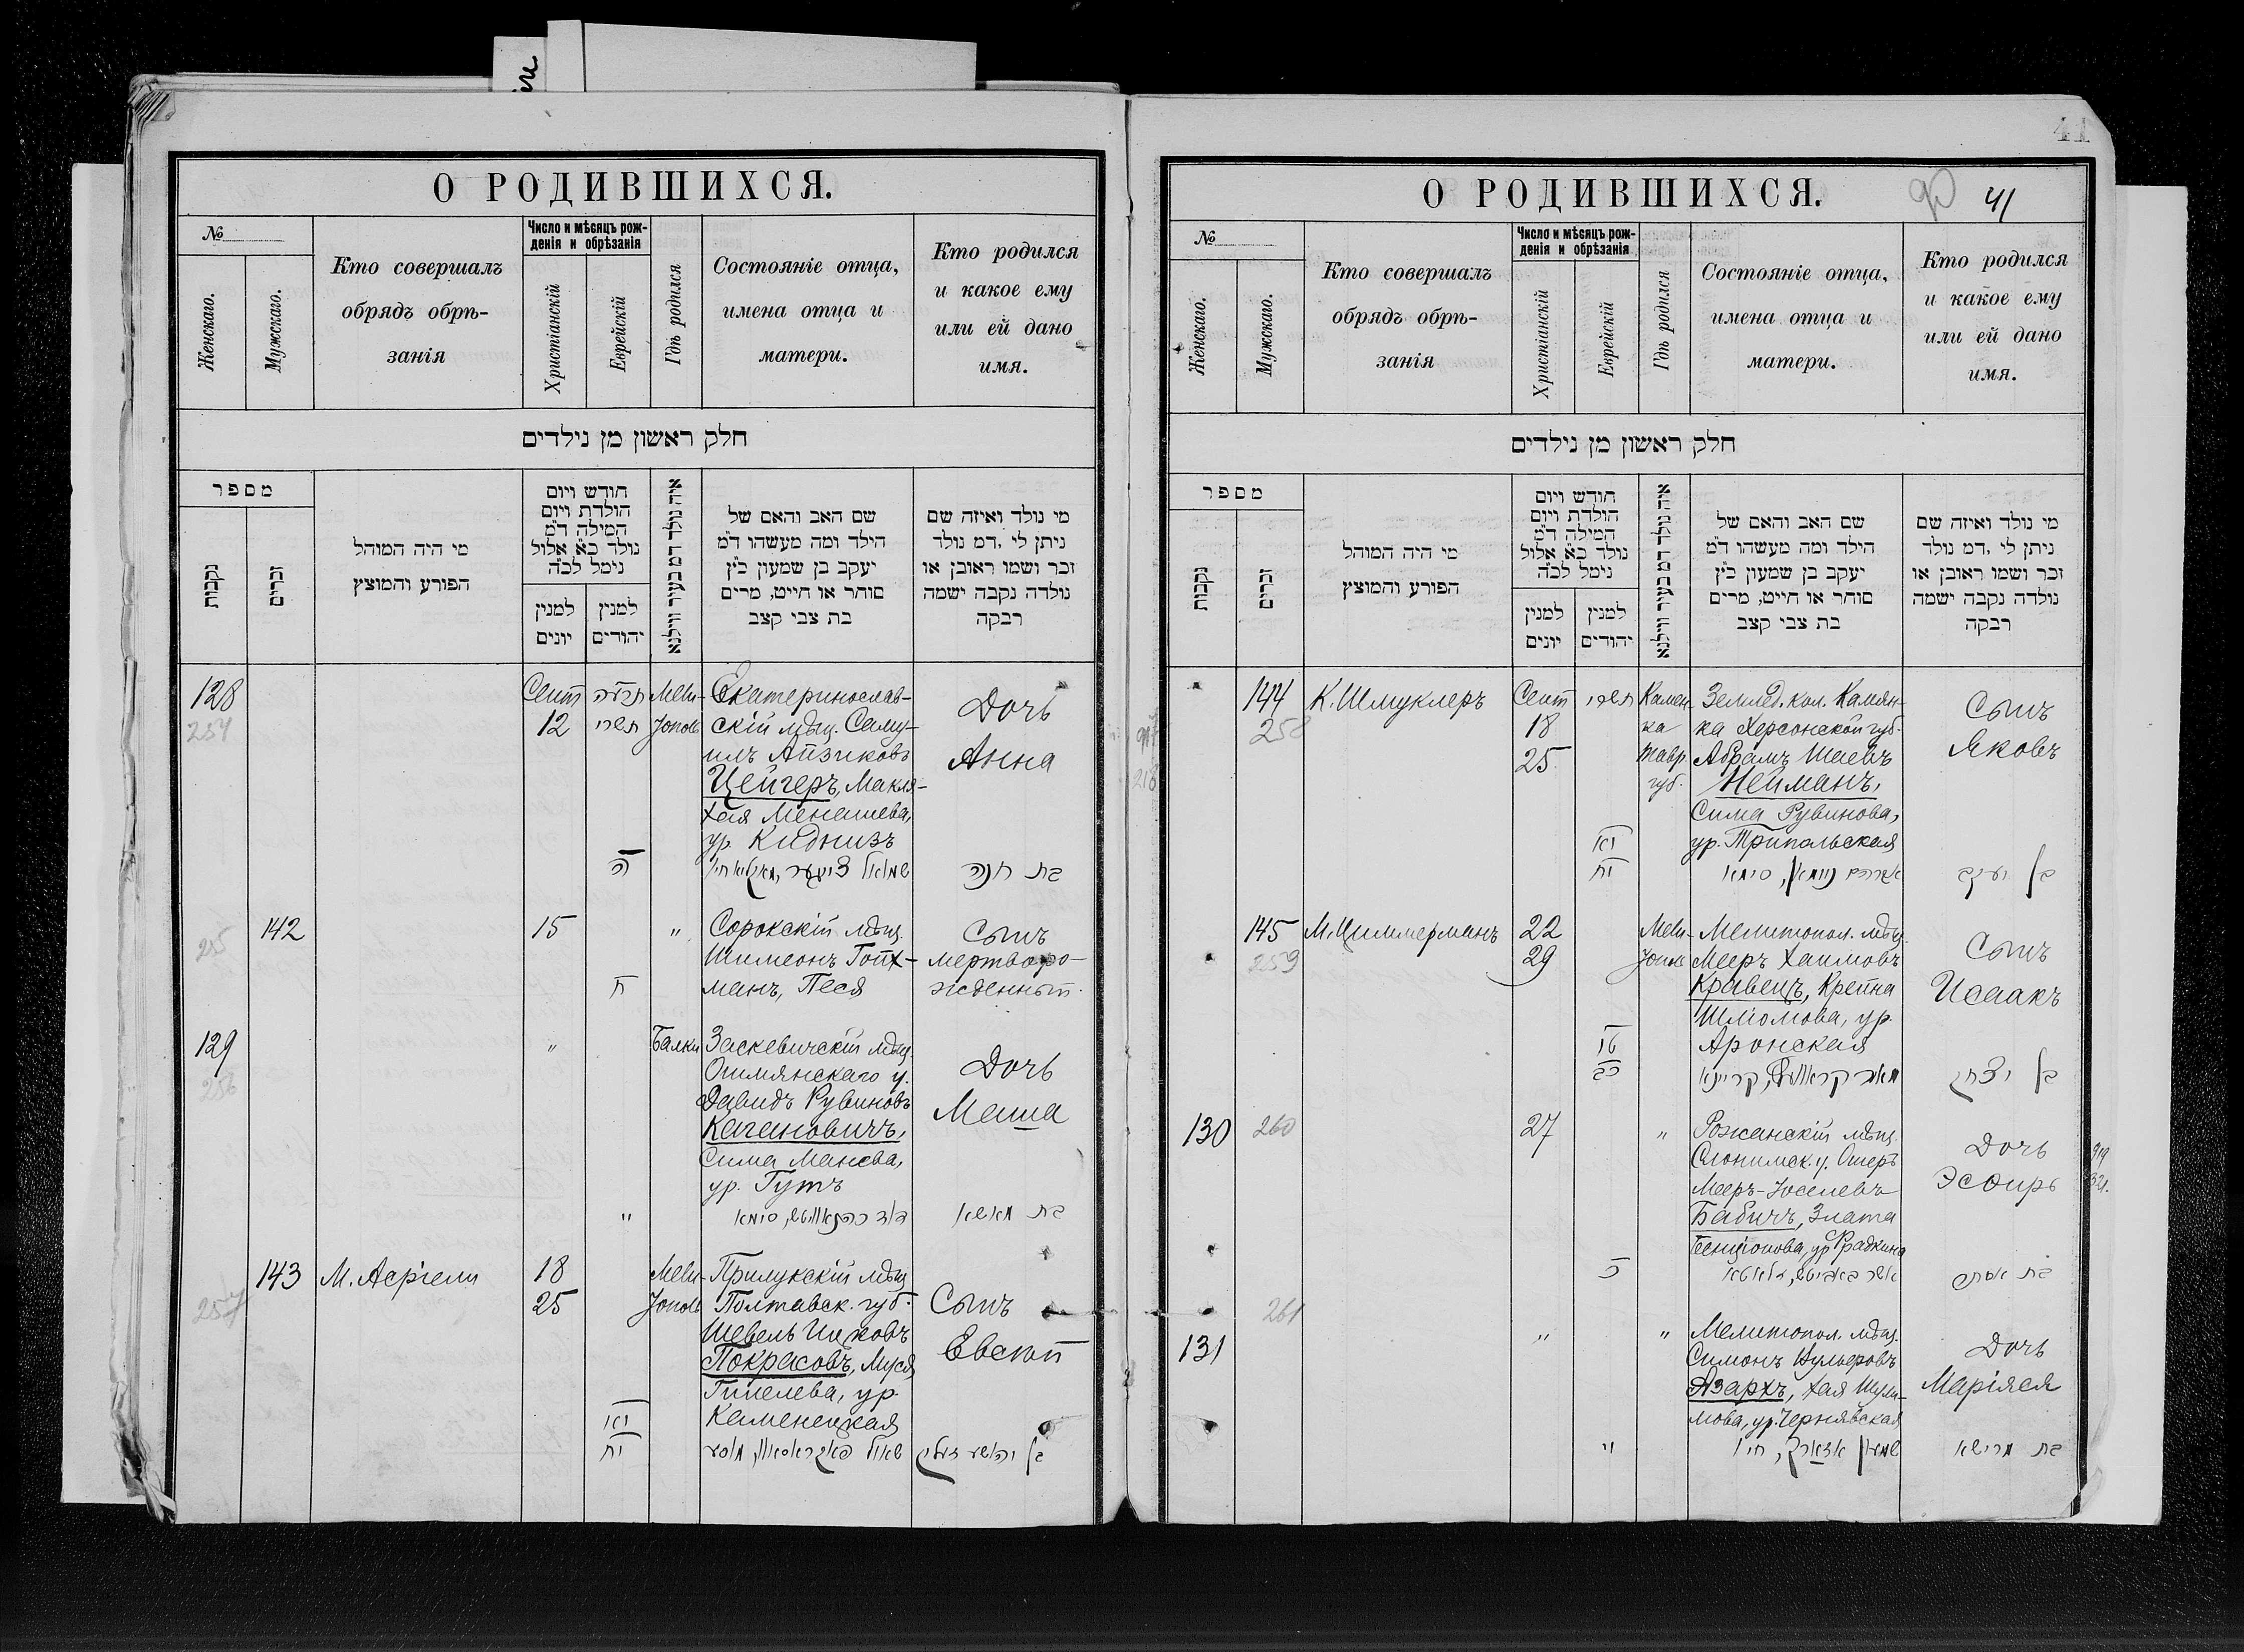 О РОДИВШИХСЯ.
№
Женскаго.
Мужскаго.
Кто совершалъ
обрядъ обрѣ-
занія
Число и мѣсяцъ рож-
денія и обрѣзанія
Христіанскій
Еврейскій
Гдѣ родился
Состояніе отца,
имена отца и
матери.
Кто родился
и какое ему
или ей дано
имя.
חלק ראשון מן נילדים
מספר
נקבות
זכרים
מי היה המוהל
הפורע והמוצץ
חודש ויום
הולדת ויום
המילה ד"מ
נולד כ"א אלול
נימל לכ"ה
למנין
יונים
למנין
יהודים
איה נולד דמ בעיר ווילנא
שם האב והאם של
הילד ומה מעשהו ד"מ
יעקב בן שמעון כ"ץ
סוחר או חייט, מרים
בת צבי קצב
מי נולד ואיזה שם
ניתן לי, דמ נולד
זכר ושמו ראובן או
נולדה נקבה ישמה
רבקה
128
254
Сент
12
תשרי
Мели-
тополь
Екатеринослав-
скій мѣщ. Саму-
илъ Айзиковъ
Цейгеръ, Макля-
Хая Менашева,
ур. Киднизъ
Дочь
Анна
ה
שמואל צייגער, מאקליא חי'
בת חנה
142
255
15
"
Сорокскій мѣщ.
Шимеонъ Гойх-
манъ, Песя
Сынъ
мертворо-
жденный.
ח
129
256
"
Балки
Заскевичскій мѣщ.
Ошмянскаго у.
Давидъ Рувиновъ
Кагановичъ,
Сима Манева,
ур. Гутъ
Дочь
Маша
"
דוד כהנאוויטש, סימא
בת מאשא
143
257
М. Асріели
18
25
Мели-
тополь
Прилукскій мѣщ.
Полтавск. губ.
Шевель Ицковъ
Покрасовъ, Муся
Гилелева, ур.
Каменецкая
Сынъ
Евсей
יא
יח
שאול פאקראסאוו, מוסע
41
О РОДИВШИХСЯ.
41
№
Женскаго.
Мужскаго.
Кто совершалъ
обрядъ обрѣ-
занія
Число и мѣсяцъ рож-
денія и обрѣзанія
Христіанскій
Еврейскій
Гдѣ родился
Состояніе отца,
имена отца и
матери.
Кто родился
и какое ему
или ей дано
имя.
חלק ראשון מן נילדים
מספר
נקבות
זכרים
מי היה המוהל
הפורע והמוצץ
חודש ויום
הולדת ויום
המילה ד"מ
נולד כ"א אלול
נימל לכ"ה
למנין
יונים
למנין
יהודים
איה נולד דמ בעיר ווילנא
שם האב והאם של
הילד ומה מעשהו ד"מ
יעקב בן שמעון כ"ץ
סוחר או חייט, מרים
בת צבי קצב
מי נולד ואיזה שם
ניתן לי, דמ נולד
זכר ושמו ראובן או
נולדה נקבה ישמה
רבקה
144
258
К. Шмуклеръ
Сент
18
25
תשרי
Камен-
ка
Тавр.
губ.
Землед. кол. Камян-
ка Херсонской губ.
Абрамъ Шаевъ
Нейманъ,
Сима Рувинова,
ур. Трипольская
Сынъ
Яковъ
יא
יח
אברהם ניימאן, סימא
בן יעקב
145
259
М. Циммерманъ
22
29
Мели-
тополь
Мелитопол. мѣщ.
Мееръ Хаимовъ
Кравецъ, Крейна
Шліомова, ур.
Аронская
Сынъ
Исаакъ
טו
כב
מאיר קראוועץ, קריינא
בן יצחק
130
260
27
"
Рожанскій мѣщ.
Слонимск. у. Ошеръ
Мееръ-Іоселевъ
Бабичъ, Злата
Бенціонова, ур. Фрадкина
Дочь
Эсѳирь
כ
אשר באביטש, זלאטא
בת אסתר
261
131
"
"
Мелитопол. мѣщ.
Симонъ Вульфовъ
Азархъ, Хая Шули-
мова, ур. Чернявская
Дочь
Маріяся
"
שמעון אזארך, חי'
בת מרישא